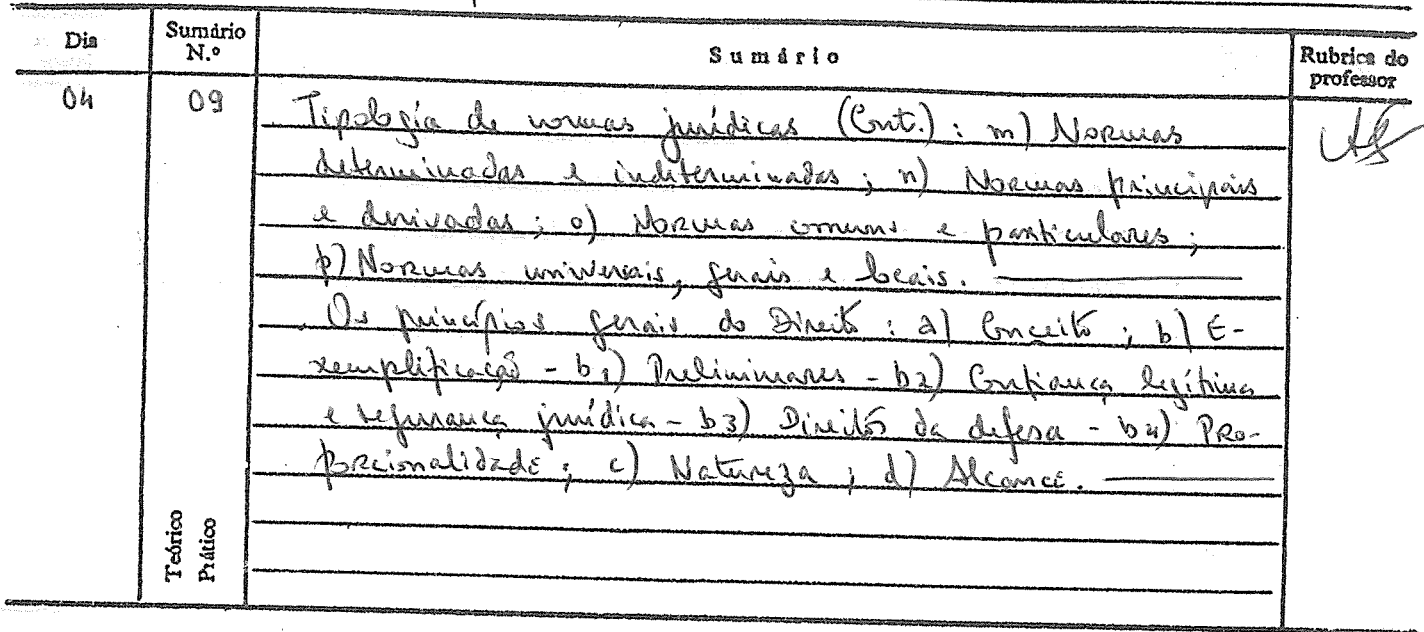 Dia
Sumário N.º
Sumário
Rubrica do professor
04
09
Tipologia de normas jurídicas (Cont.): m) Normas
determinadas e indeterminadas; n) Normas principais
e derivadas; o) Normas comuns e particulares;
p) Normas universais, gerais e locais.
Os princípios gerais do Direito: a) Conceito; b) E-
xemplificação - b1) Preliminares - b2) Confiança legítima
e segurança jurídica - b3) Direitos da defesa - b4) Pro-
porcionalidade; c) Natureza; d) Alcance.
Teórico
Prático